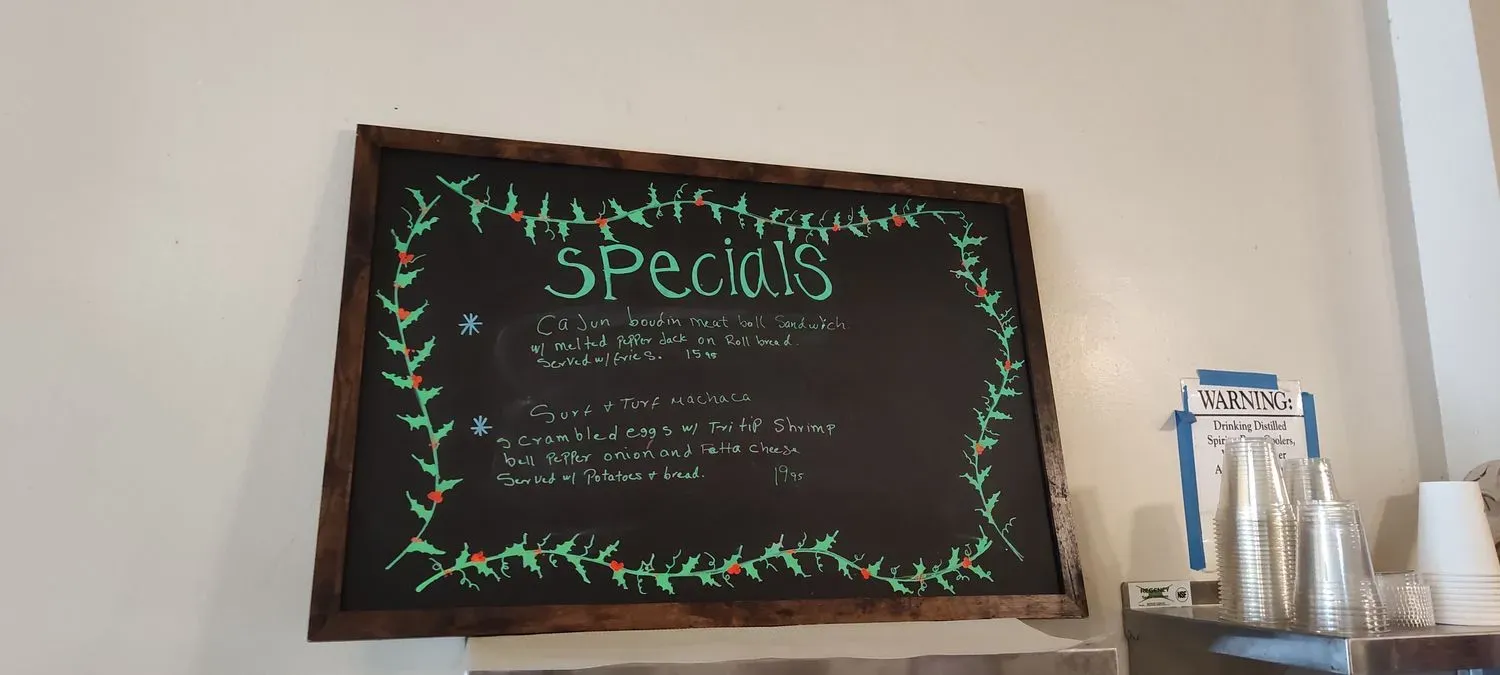 specials
Cajun boudin meat ball Sandwich
w/ melted Pepper Jack on Roll bread.
Served w/ fries. 15 95
Surf + Turf Machaca
scrambled eggs w/ Tri tip Shrimp
bell Pepper onion and Fetta Cheese
Served w/ Potatoes + bread. 19 95
WARNING:
Drinking Distilled
Coolers,
REGENCY
NSF